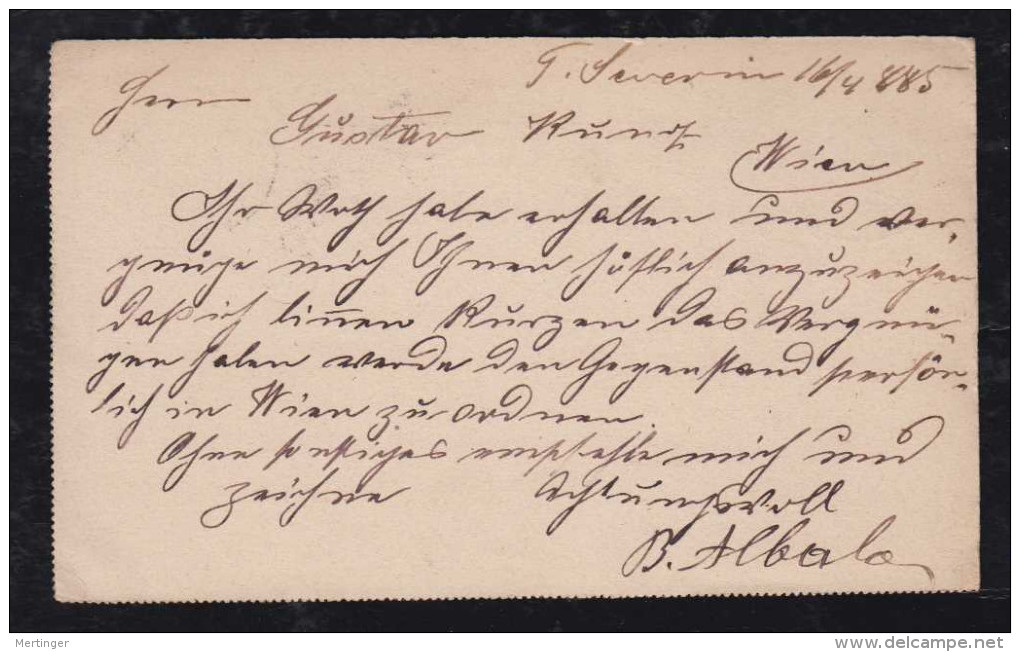 T. Severin 16/4 885
Herrn
Gustav
Wien
Ihr Werth habe erhalten und ver-
gnüge mich Ihnen höflich anzuzeigen
daß ich binnen Kurzen das Vergnü-
gen haben werde den Gegenstand persön-
lich in Wien zu ordnen.
Ohne sonstiges empfehle mich und
zeichne Achtungsvoll
B. Albala
Mertinger
www.delcampe.net